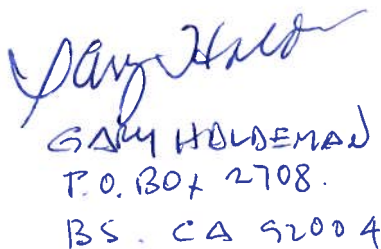 Gary Holde
GARY HOLDEMAN
P.O. BOX 2708.
BS. CA 92004